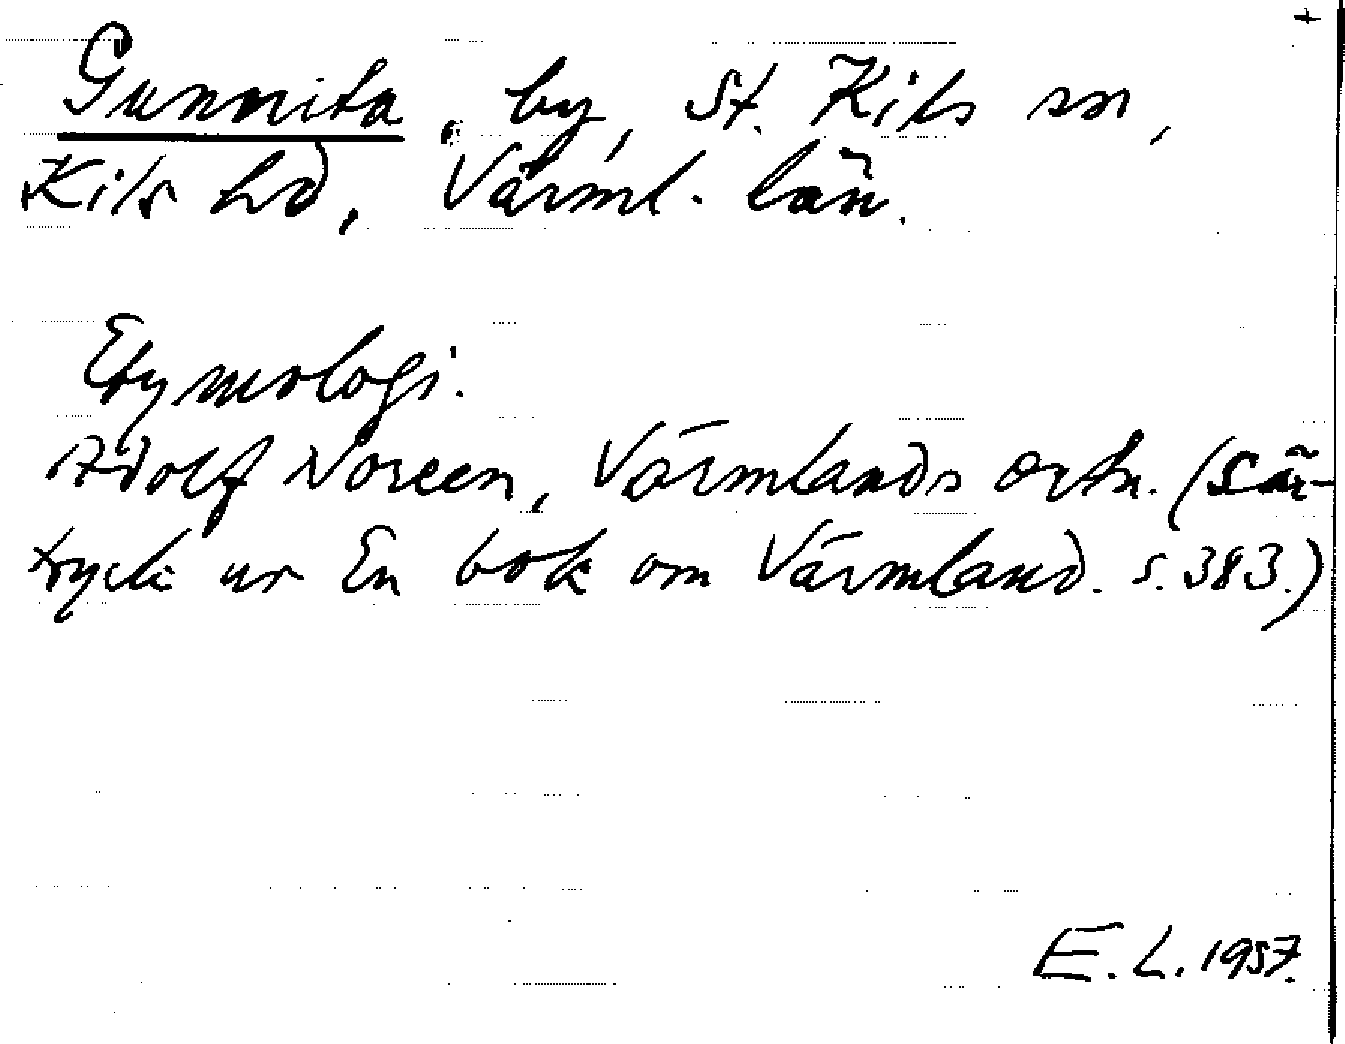 +
Gunnita, by, St. Kils sn,
Kils hd, Värml. län.
Etymologi.
Adolf Noreen, Värmlands ortn. (Sär-
tryck ur En bok om Värmland. s. 383.)
E. L. 1957.